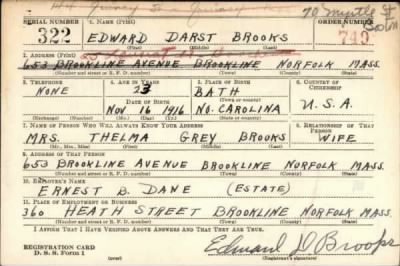 70 Myrtle St
SERIAL NUMBER 1. NAME (Print) ORDER NUMBER
322 EDWARD DARST BROOKS 749
(First) (Middle) (Last)
2. ADDRESS (Print)
653 BROOKLINE AVENUE BROOKLINE NORFOLK MASS.
(Number and street or R. F. D. number) (Town) (County) (State)
3. TELEPHONE 4. AGE IN YEARS 5. PLACE OF BIRTH 6. COUNTRY OF CITIZENSHIP
NONE 23 BATH
DATE OF BIRTH (Town or county)
Nov 16 1916 No. CAROLINA U.S.A.
(Exchange) (Number) (Mo.) (Day) (Yr.) (State or country)
7. NAME OF PERSON WHO WILL ALWAYS KNOW YOUR ADDRESS 8. RELATIONSHIP OF THAT PERSON
MRS. THELMA GREY BROOKS WIFE
(Mr., Mrs., Miss) (First) (Middle) (Last)
9. ADDRESS OF THAT PERSON
653 BROOKLINE AVENUE BROOKLINE NORFOLK MASS.
(Number and street or R. F. D. number) (Town) (County) (State)
10. EMPLOYER'S NAME
ERNEST B. DANE (ESTATE)
11. PLACE OF EMPLOYMENT OR BUSINESS
360 HEATH STREET BROOKLINE NORFOLK MASS.
(Number and street or R. F. D. number) (Town) (County) (State)
I AFFIRM THAT I HAVE VERIFIED ABOVE ANSWERS AND THAT THEY ARE TRUE.
REGISTRATION CARD
D. S. S. Form 1
Edward D Brooks
(Registrant's signature)